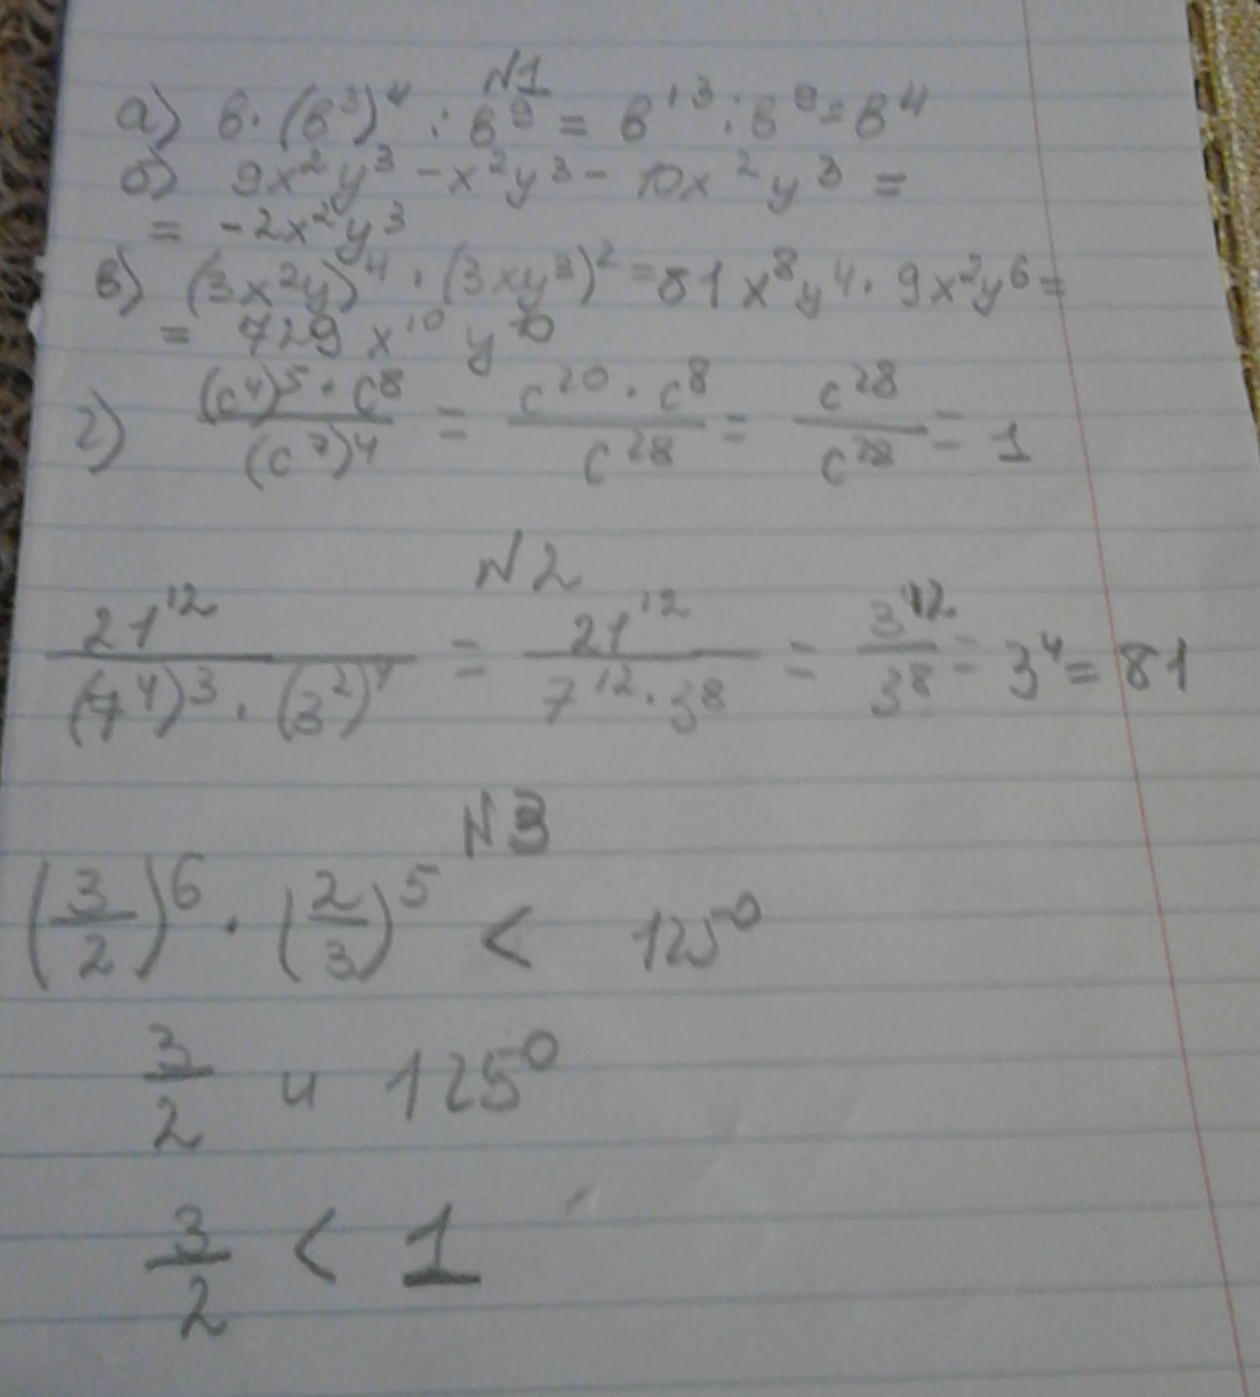 №1
а) в · (в³)⁴ : в⁹ = в¹³ : в⁹ = в⁴
б) 9x²y³ - x²y³ - 10x²y³ =
= -2x²y³
в) (3x²y)⁴ · (3xy³)² = 81x⁸y⁴ · 9x²y⁶ =
= 729x¹⁰y¹⁰
г) (c⁴)⁵ · c⁸ / (c⁷)⁴ = c²⁰ · c⁸ / c²⁸ = c²⁸ / c²⁸ = 1
№2
21¹² / (7⁴)³ · (3²)⁴ = 21¹² / 7¹² · 3⁸ = 3¹² / 3⁸ = 3⁴ = 81
№3
(3/2)⁶ · (2/3)⁵ < 125⁰
3/2 и 125⁰
3/2 < 1